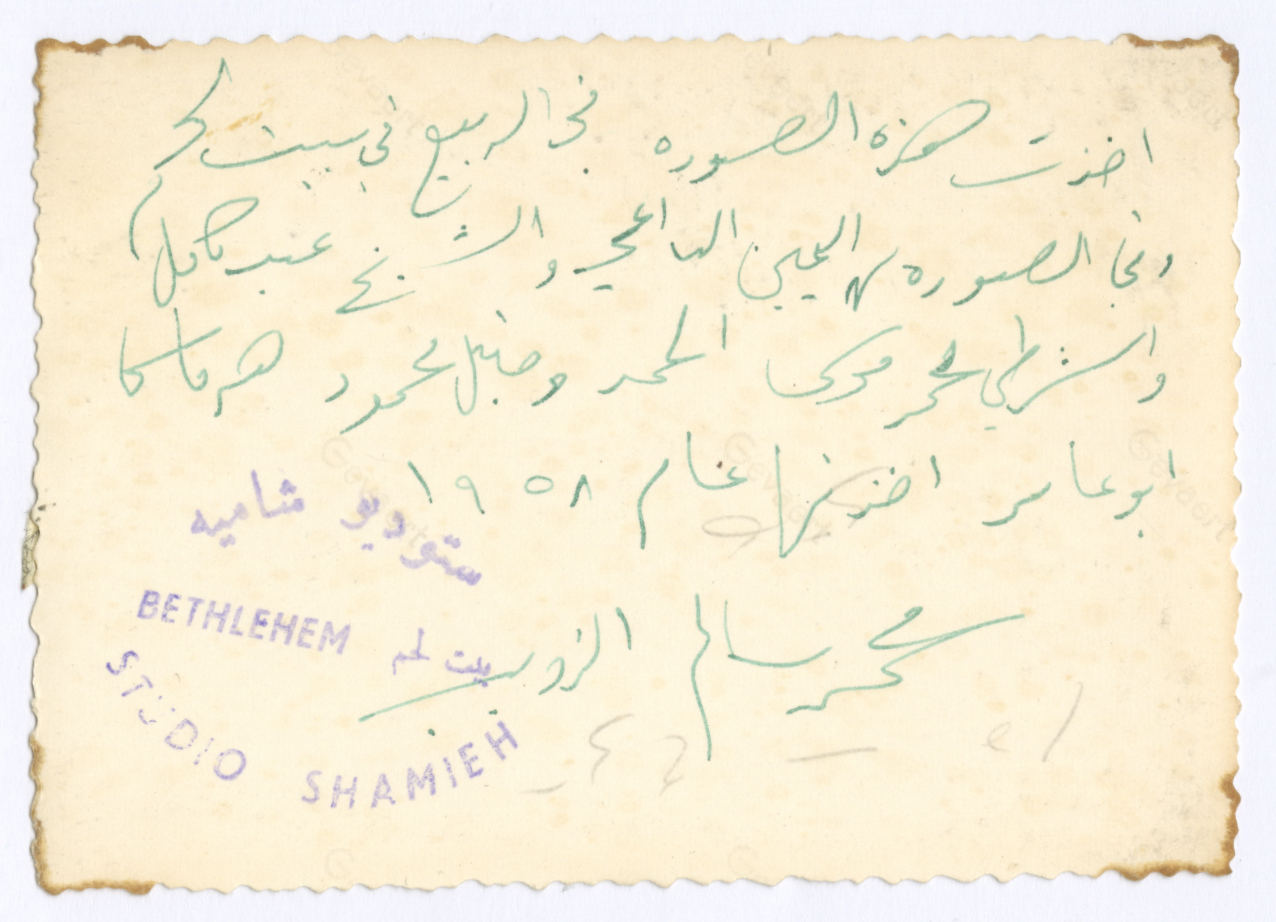 اخذت هذه الصوره في الربيع في بيت لحم
وفي الصوره من اليمين الساعي والشيخ عبد كامل
والشرطي محمد موسى الحمد وخليل محمود
ابو عامر اخذتها عام ١٩٥٨
محمد سالم الذويب
ستوديو شاميه
BETHLEHEM بيت لحم
STUDIO SHAMIEH